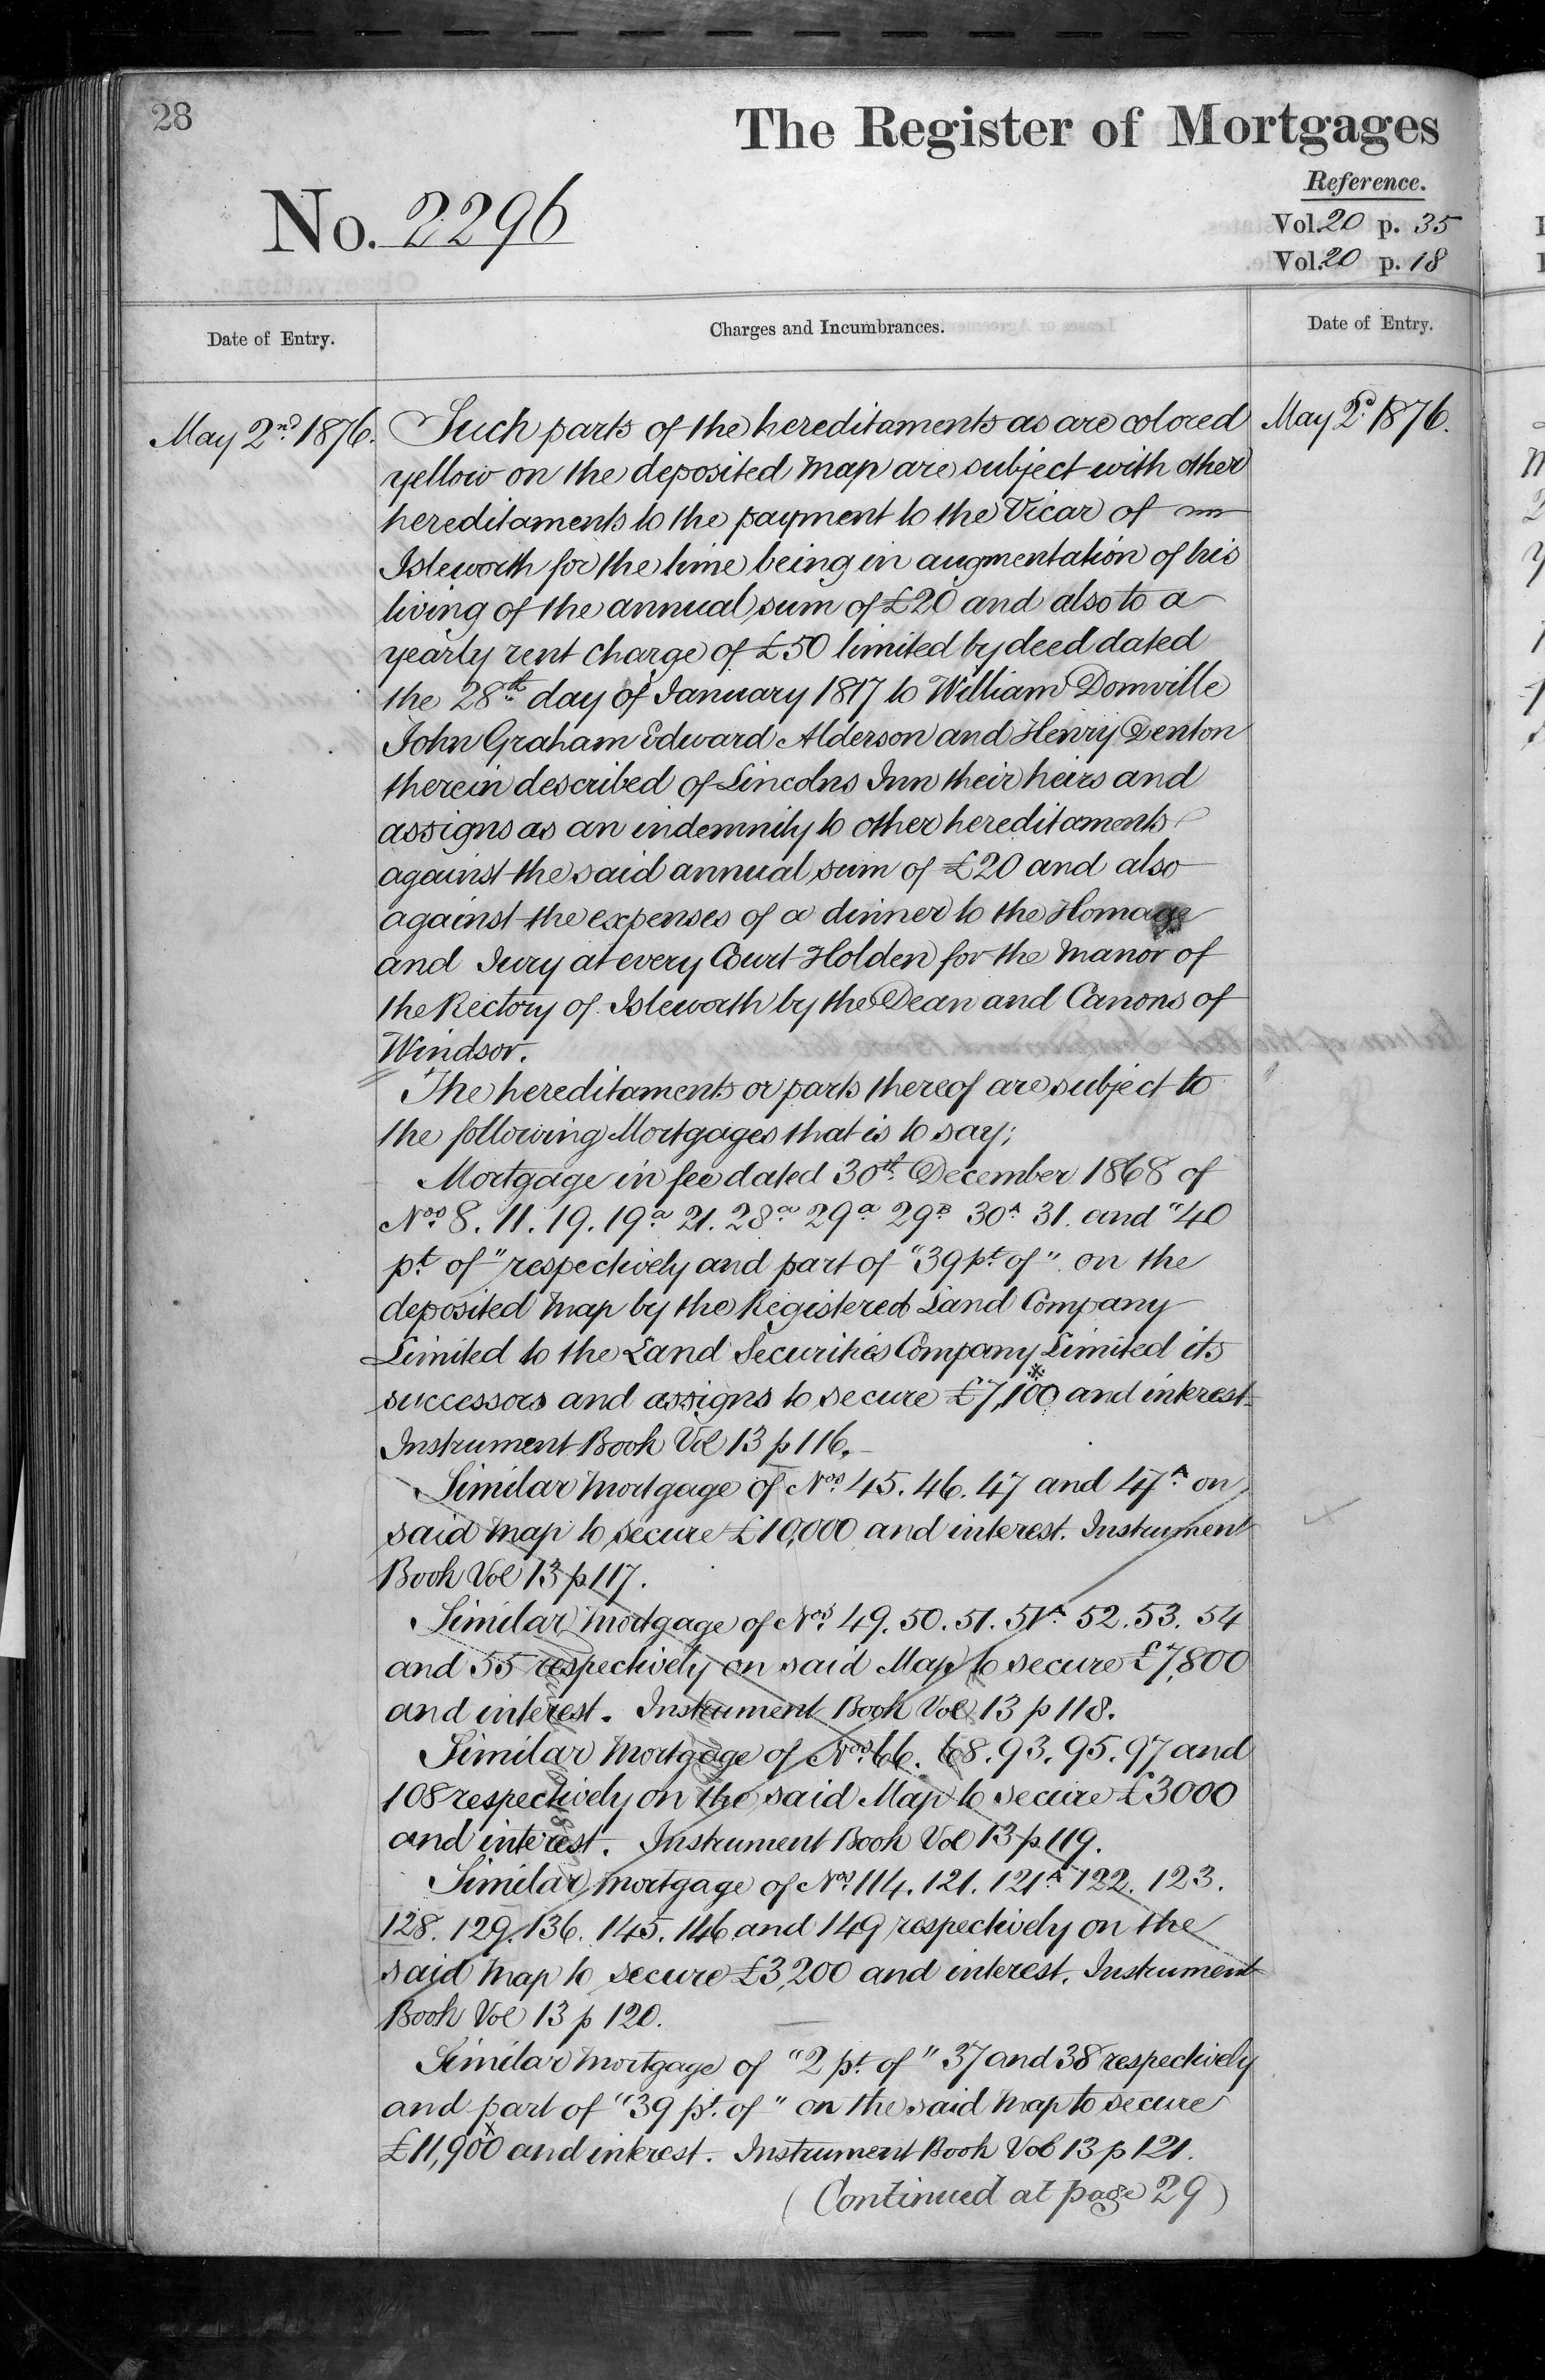 28
The Register of Mortgages
Reference.
No. 2296
Vol. 20 p. 35
Vol. 20 p. 18
Date of Entry.
Charges and Incumbrances.
Date of Entry.
May 2nd 1876.
May 2d 1876.
Such parts of the hereditaments as are colored
yellow on the deposited Map are subject with other
hereditaments to the payment to the Vicar of
Isleworth for the time being in augmentation of his
living of the annual sum of £20 and also to a
yearly rent charge of £50 limited by deed dated
the 28th day of January 1817 to William Domville
John Graham Edward Alderson and Henry Denton
therein described of Lincolns Inn their heirs and
assigns as an indemnity to other hereditaments
against the said annual sum of £20 and also
against the expenses of a dinner to the Homage
and Jury at every Court Holden for the Manor of
the Rectory of Isleworth by the Dean and Canons of
Windsor.
The hereditaments or parts thereof are subject to
the following Mortgages that is to say;
Mortgage in fee dated 30th December 1868 of
Nos 8. 11. 19. 19a 21. 28a 29a 29B 30A 31. and "40
pt of" respectively and part of "39 pt of" on the
deposited Map by the Registered Land Company
Limited to the Land Securities Company Limited its
successors and assigns to secure £7,100* and interest
Instrument Book Vol 13 p 116.
Similar Mortgage of Nos 45. 46. 47 and 47A on
said Map to secure £10,000 and interest. Instrument
Book Vol 13 p 117.
Similar Mortgage of Nos 49. 50. 51. 51A 52. 53. 54
and 55 respectively on said Map to secure £7,800
and interest. Instrument Book Vol 13 p 118.
Similar Mortgage of Nos 66. 68. 93. 95. 97 and
108 respectively on the said Map to secure £3000
and interest. Instrument Book Vol 13 p 119.
Similar mortgage of Nos 114. 121. 121A 122. 123.
128. 129. 136. 145. 146 and 149 respectively on the
said Map to secure £3,200 and interest. Instrument
Book Vol 13 p 120.
Similar Mortgage of "2 pt of" 37 and 38 respectively
and part of "39 pt of" on the said Map to secure
£11,900x and interest. Instrument Book Vol 13 p 121.
(Continued at page 29)